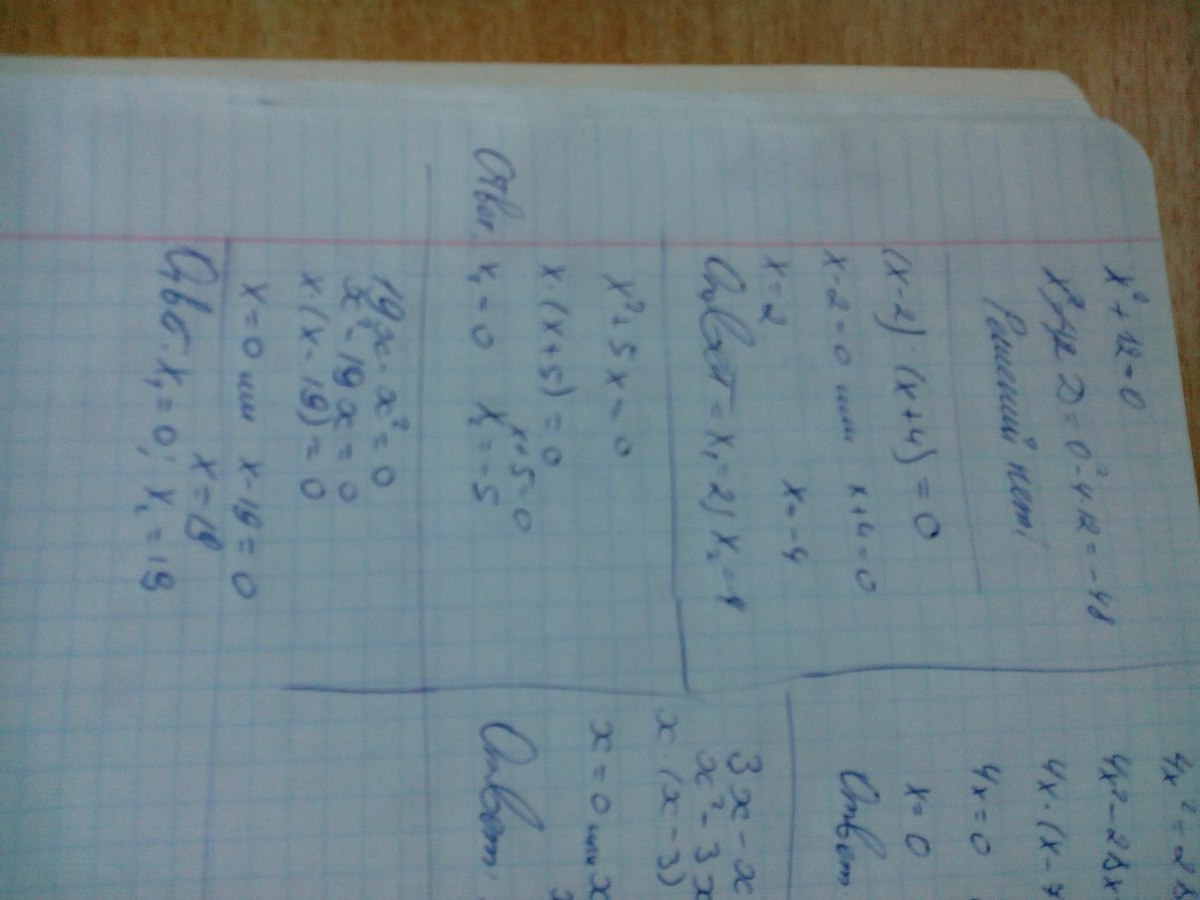 x² + 12 = 0
D = 0² - 4·12 = -48
Решений нет!
(x - 2) · (x + 4) = 0
x - 2 = 0 или x + 4 = 0
x = 2 x = -4
Ответ = x₁ = 2; x₂ = -4
x² + 5x = 0
x · (x + 5) = 0
x + 5 = 0
Ответ: x₁ = 0 x₂ = -5
19x - x² = 0
x² - 19x = 0
x · (x - 19) = 0
x = 0 или x - 19 = 0
x = 19
Ответ: x₁ = 0; x₂ = 19
4x² = 28
4x² - 28x
4x · (x - 7
4x = 0
x = 0
Ответ
3x - x
x² - 3x
x (x - 3)
x = 0 или x
Ответ: